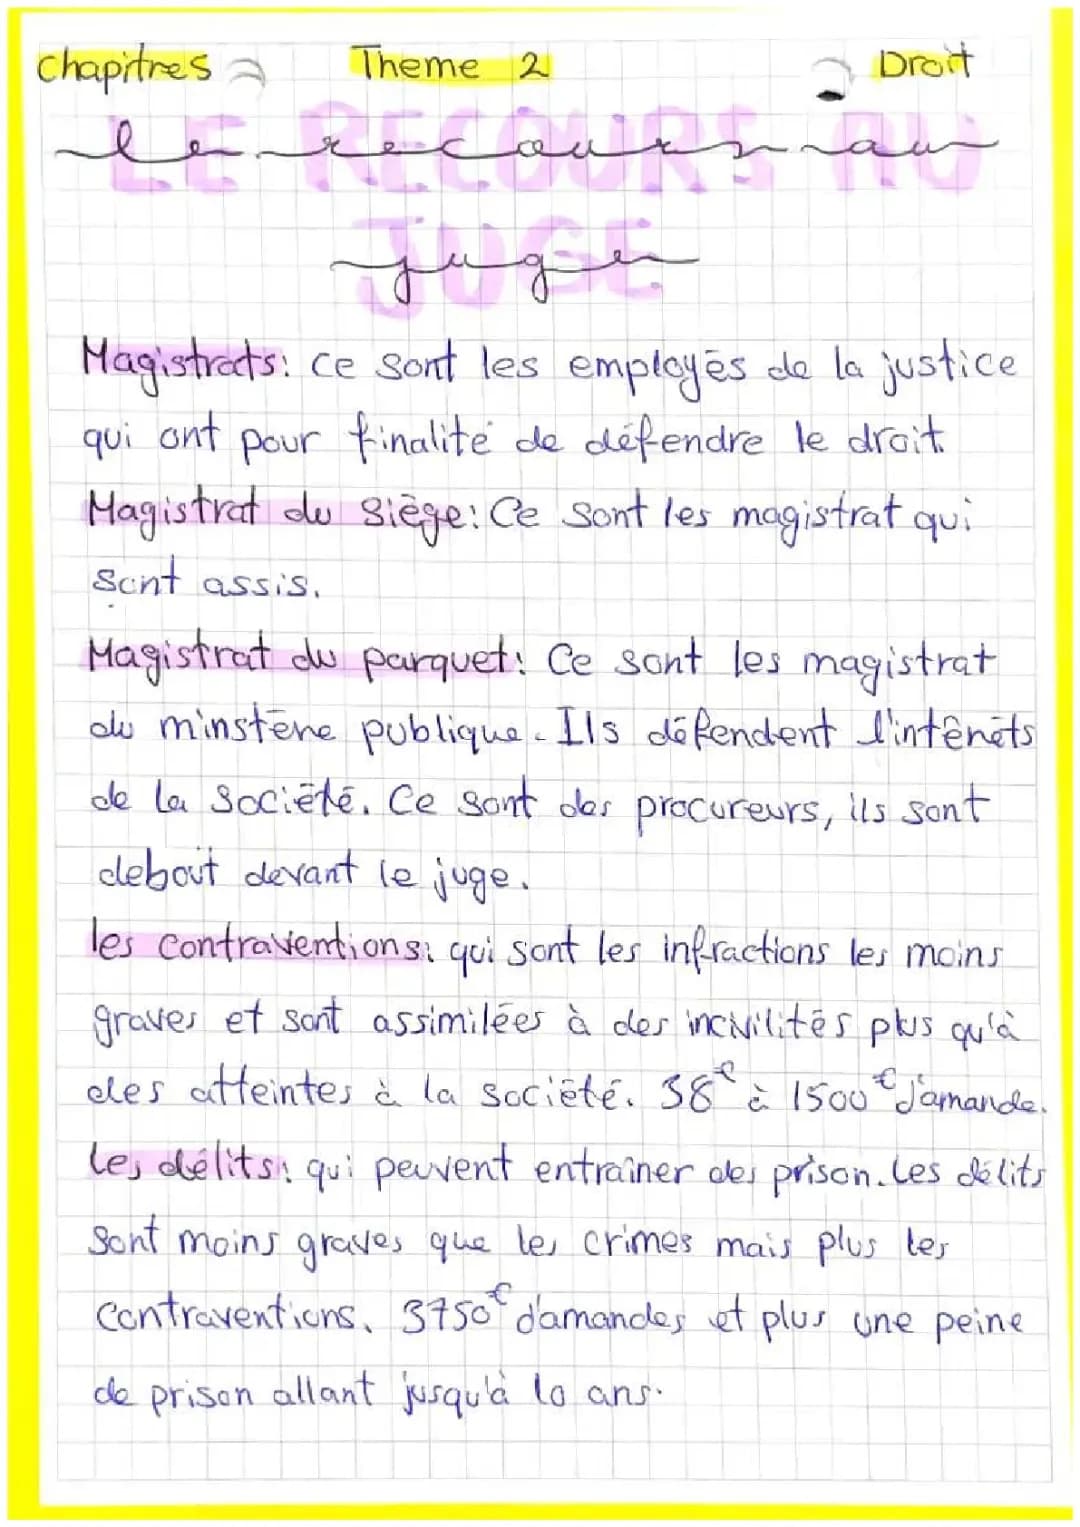 chapitres Theme 2 Droit
LE RECOURS AU
le recours au
JUGE
juge
Magistrats: ce sont les employés de la justice
qui ont pour finalité de défendre le droit.
Magistrat du Siège: Ce sont les magistrat qui
sont assis.
Magistrat du parquet: Ce sont les magistrat
du minstère publique. Ils défendent l'intêrêts
de la société. Ce sont des procureurs, ils sont
debout devant le juge.
les contraventions: qui sont les infractions les moins
graves et sont assimilées à des incivilités plus qu'à
des atteintes à la société. 38€ à 1500€ d'amande.
les délits: qui peuvent entraîner des prison. les délits
sont moins graves que les crimes mais plus les
contraventions. 3750€ d'amandes et plus une peine
de prison allant jusqu'à 10 ans.